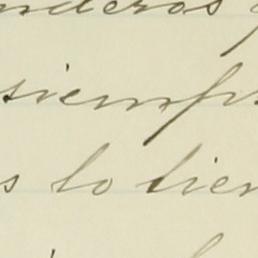 nderos
siemp
s lo tien